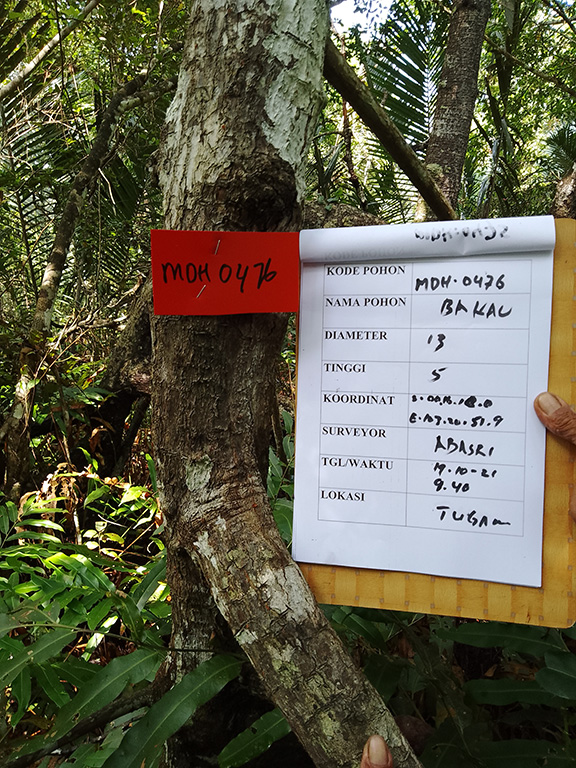 MDH 0476
KODE POHON MDH.0476
NAMA POHON BAKAU
DIAMETER 13
TINGGI 5
KOORDINAT
SURVEYOR ABASRI
TGL/WAKTU 19-10-21
9.40
LOKASI